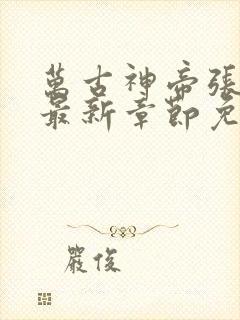 萬古神帝張
最新章節免
嚴俊